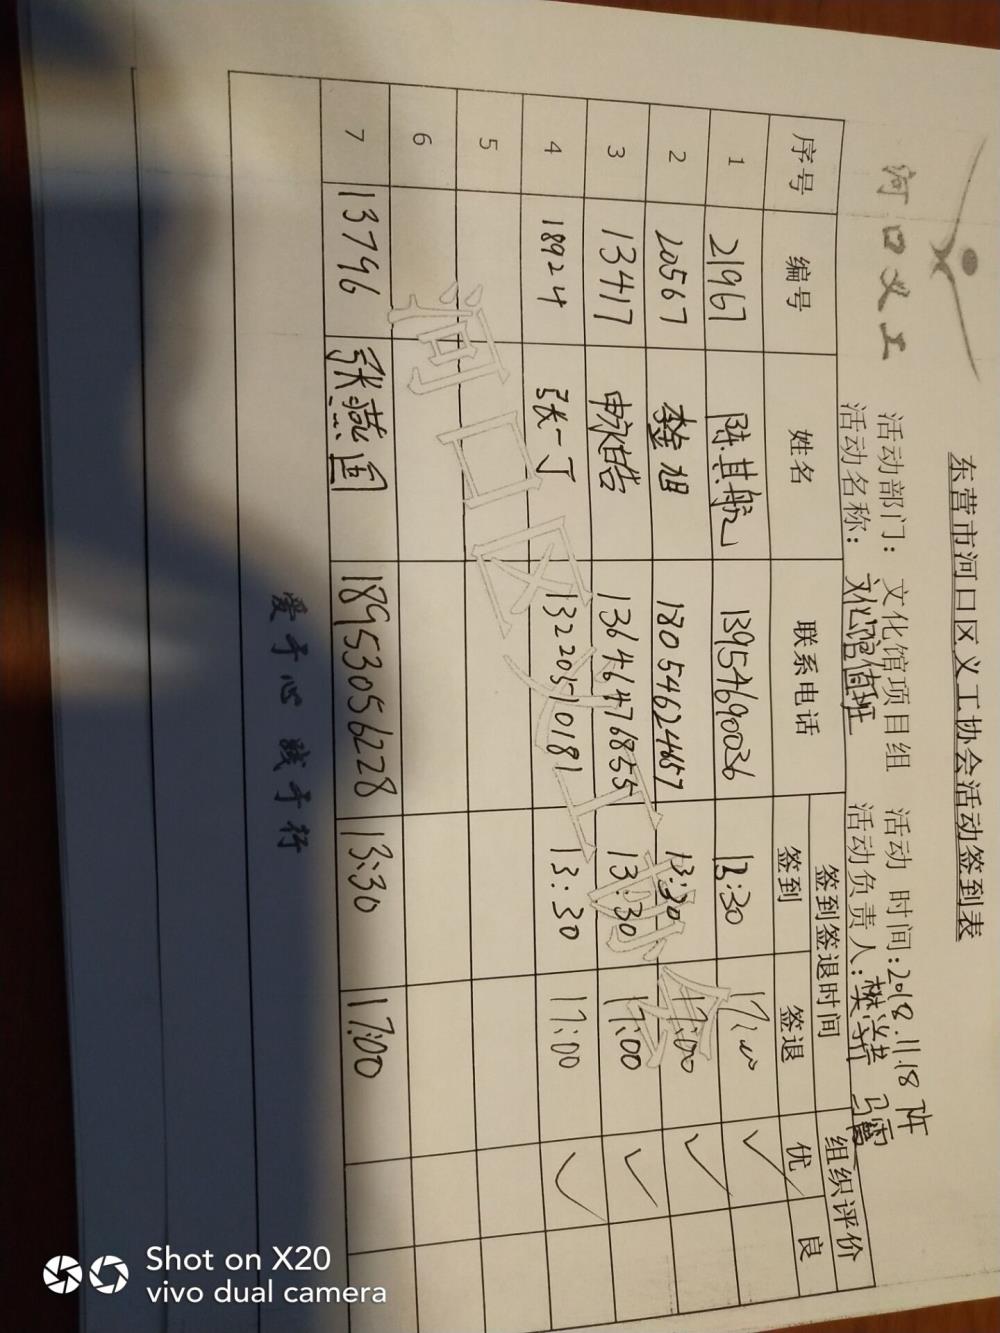 河口义工
东营市河口区义工协会活动签到表
活动部门：文化馆项目组 活动 时间:2018.11.18 下午
活动名称：文化馆值班 活动负责人:
序号 编号 姓名 联系电话 签到签退时间 组织评价
签到 签退 优 良
1 21967 陈其航 13954690036 13:30 17:00 ✓
2 20567 18054624657 13:30 17:00 ✓
3 13417 13646476855 13:30 17:00 ✓
4 18924 张一丁 13220510181 13:30 17:00 ✓
5
6
7 13796 张燕 18953056228 13:30 17:00
河口区义工协会
爱于心 践于行
Shot on X20
vivo dual camera